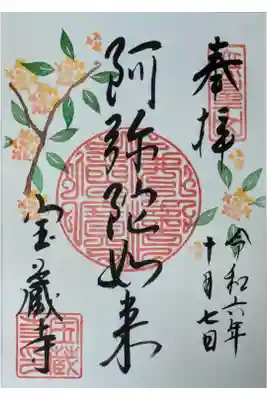 奉拝
令和六年
十月七日
阿弥陀如来
宝蔵寺